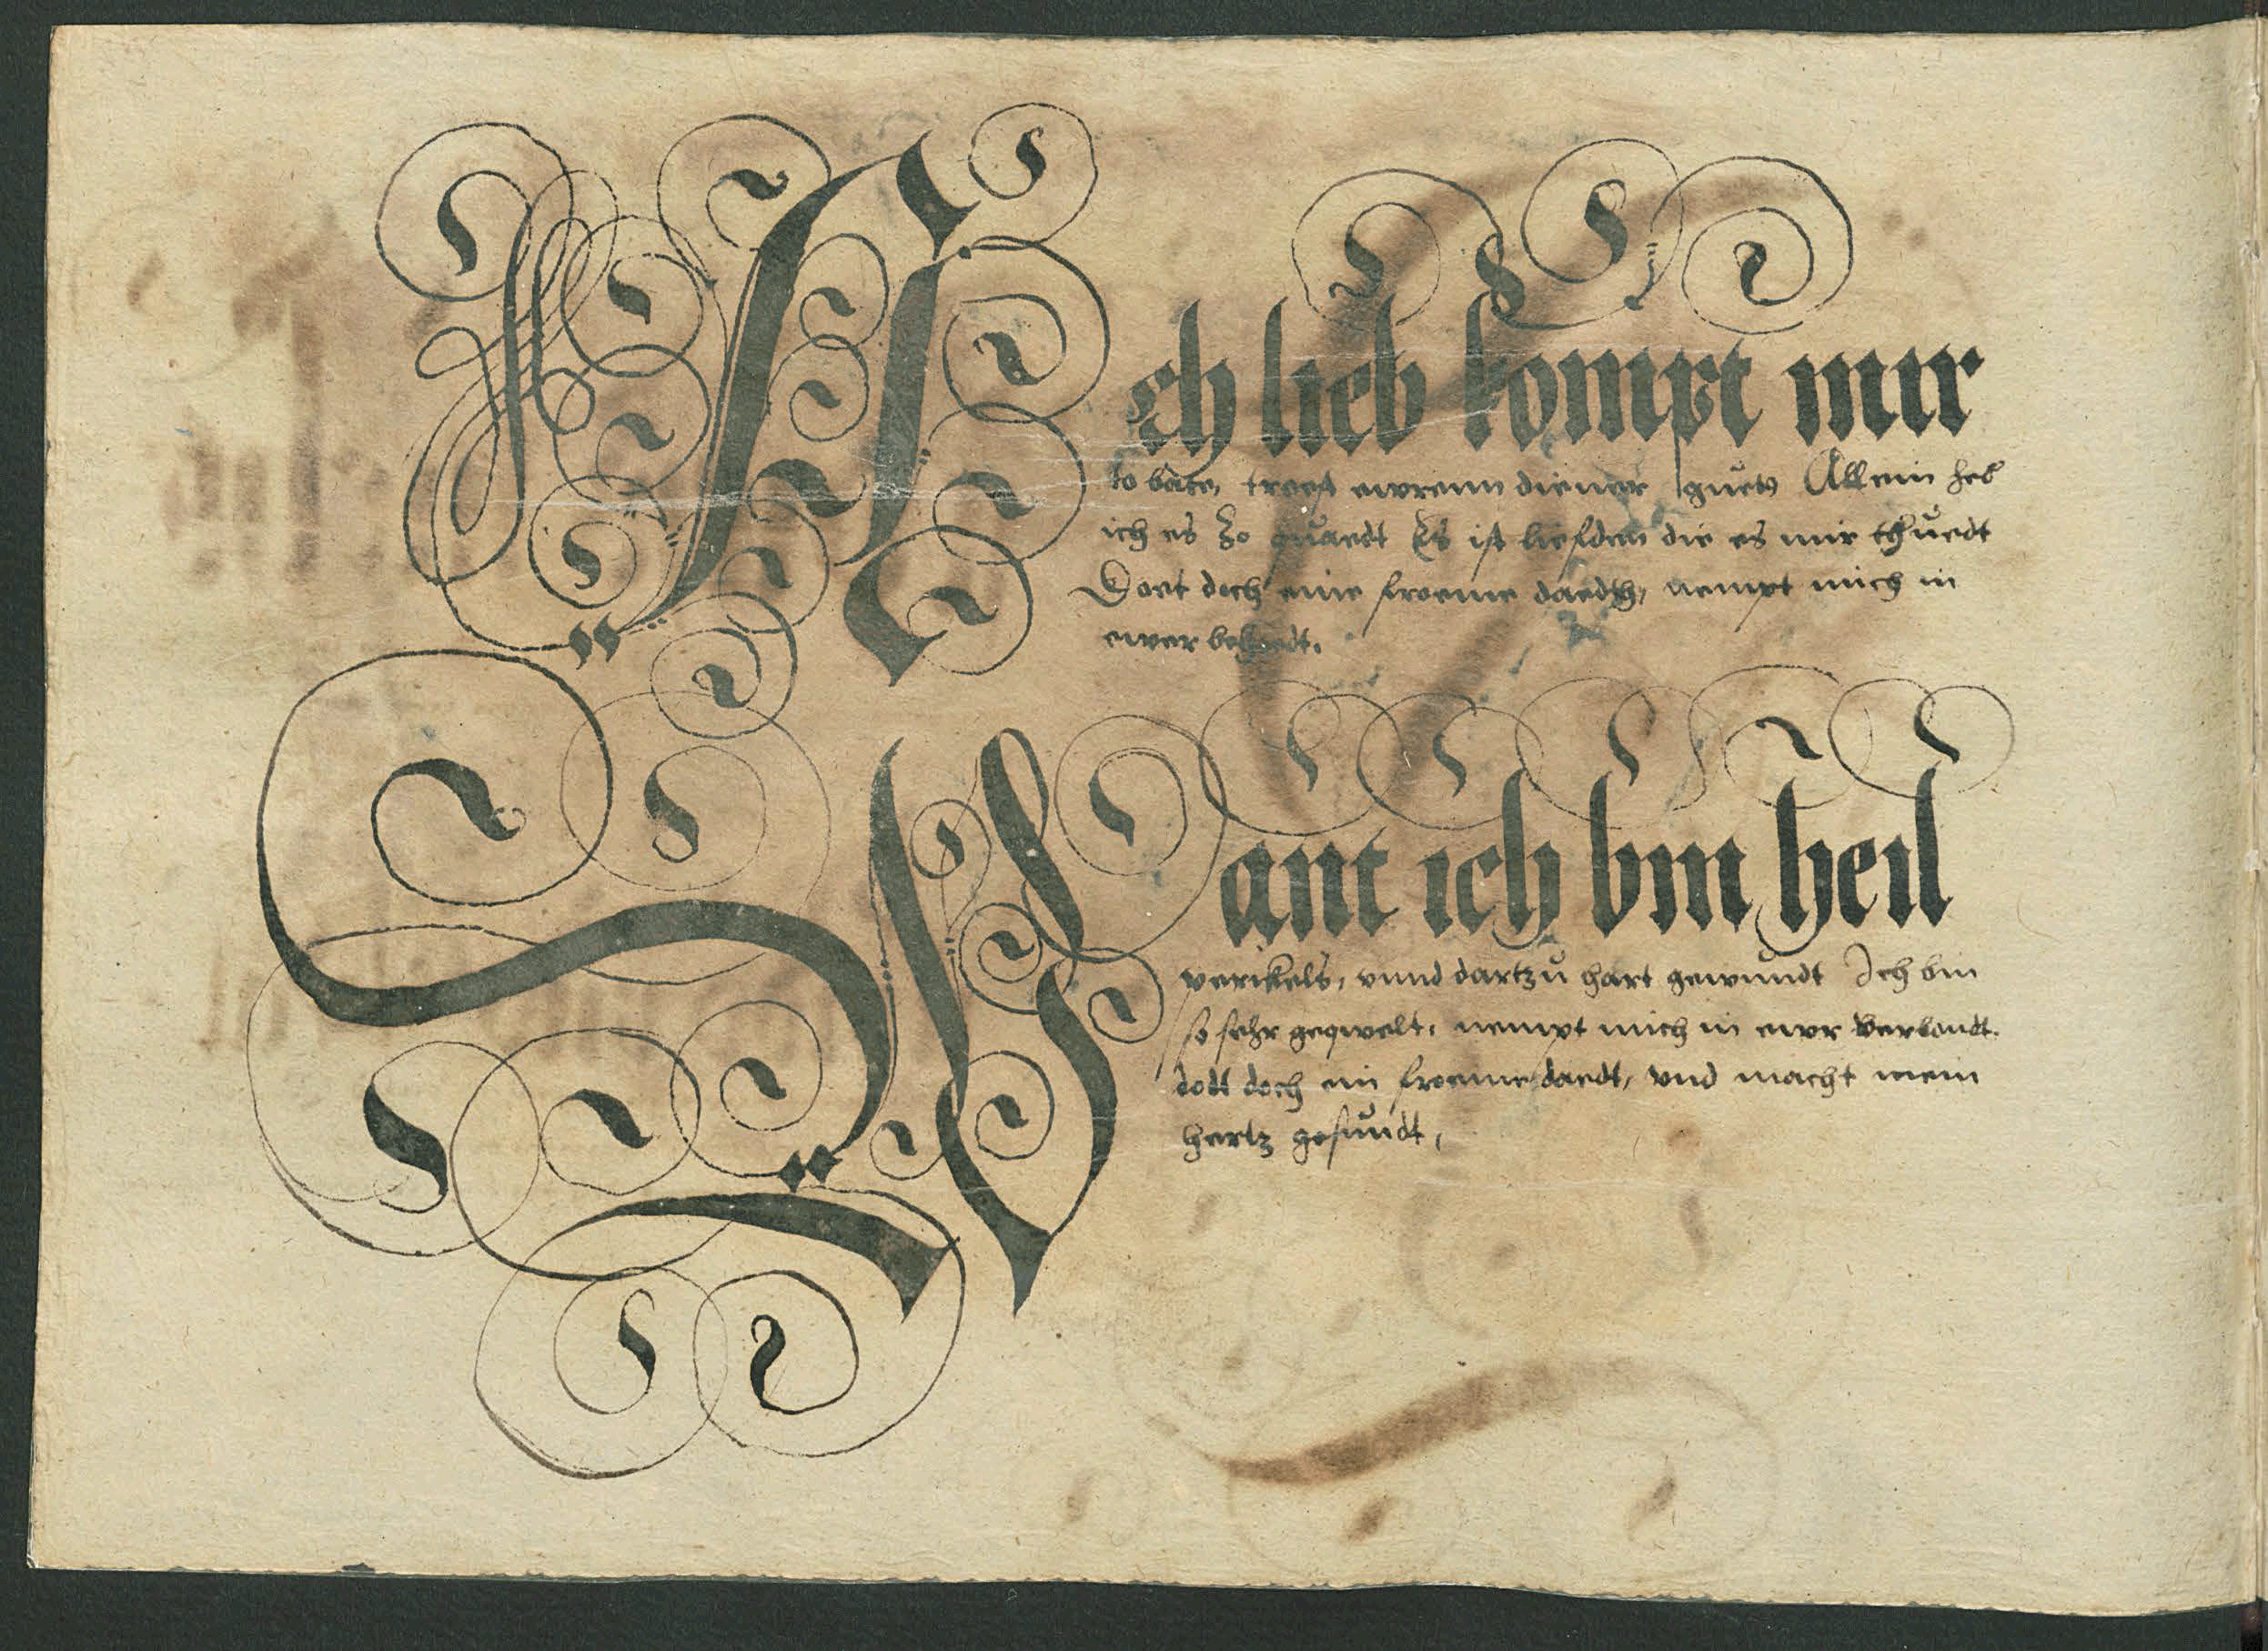 Ach lieb kompt mir
to bate, treest ewrenn diener guets Allein heb
ich es Zo quaedt Es ist liefden die es mir thuedt
Doet doch eine froeme daedth, nempt mich in
ewer behoedt.
Want ich bin heil
perikels, vnnd dartzu hart gewundt Ich bin
so sehr geqwelt, nempt mich in ewr verbondt.
dodt doch ein froeme daedt, vnd macht mein
hertz gesundt,